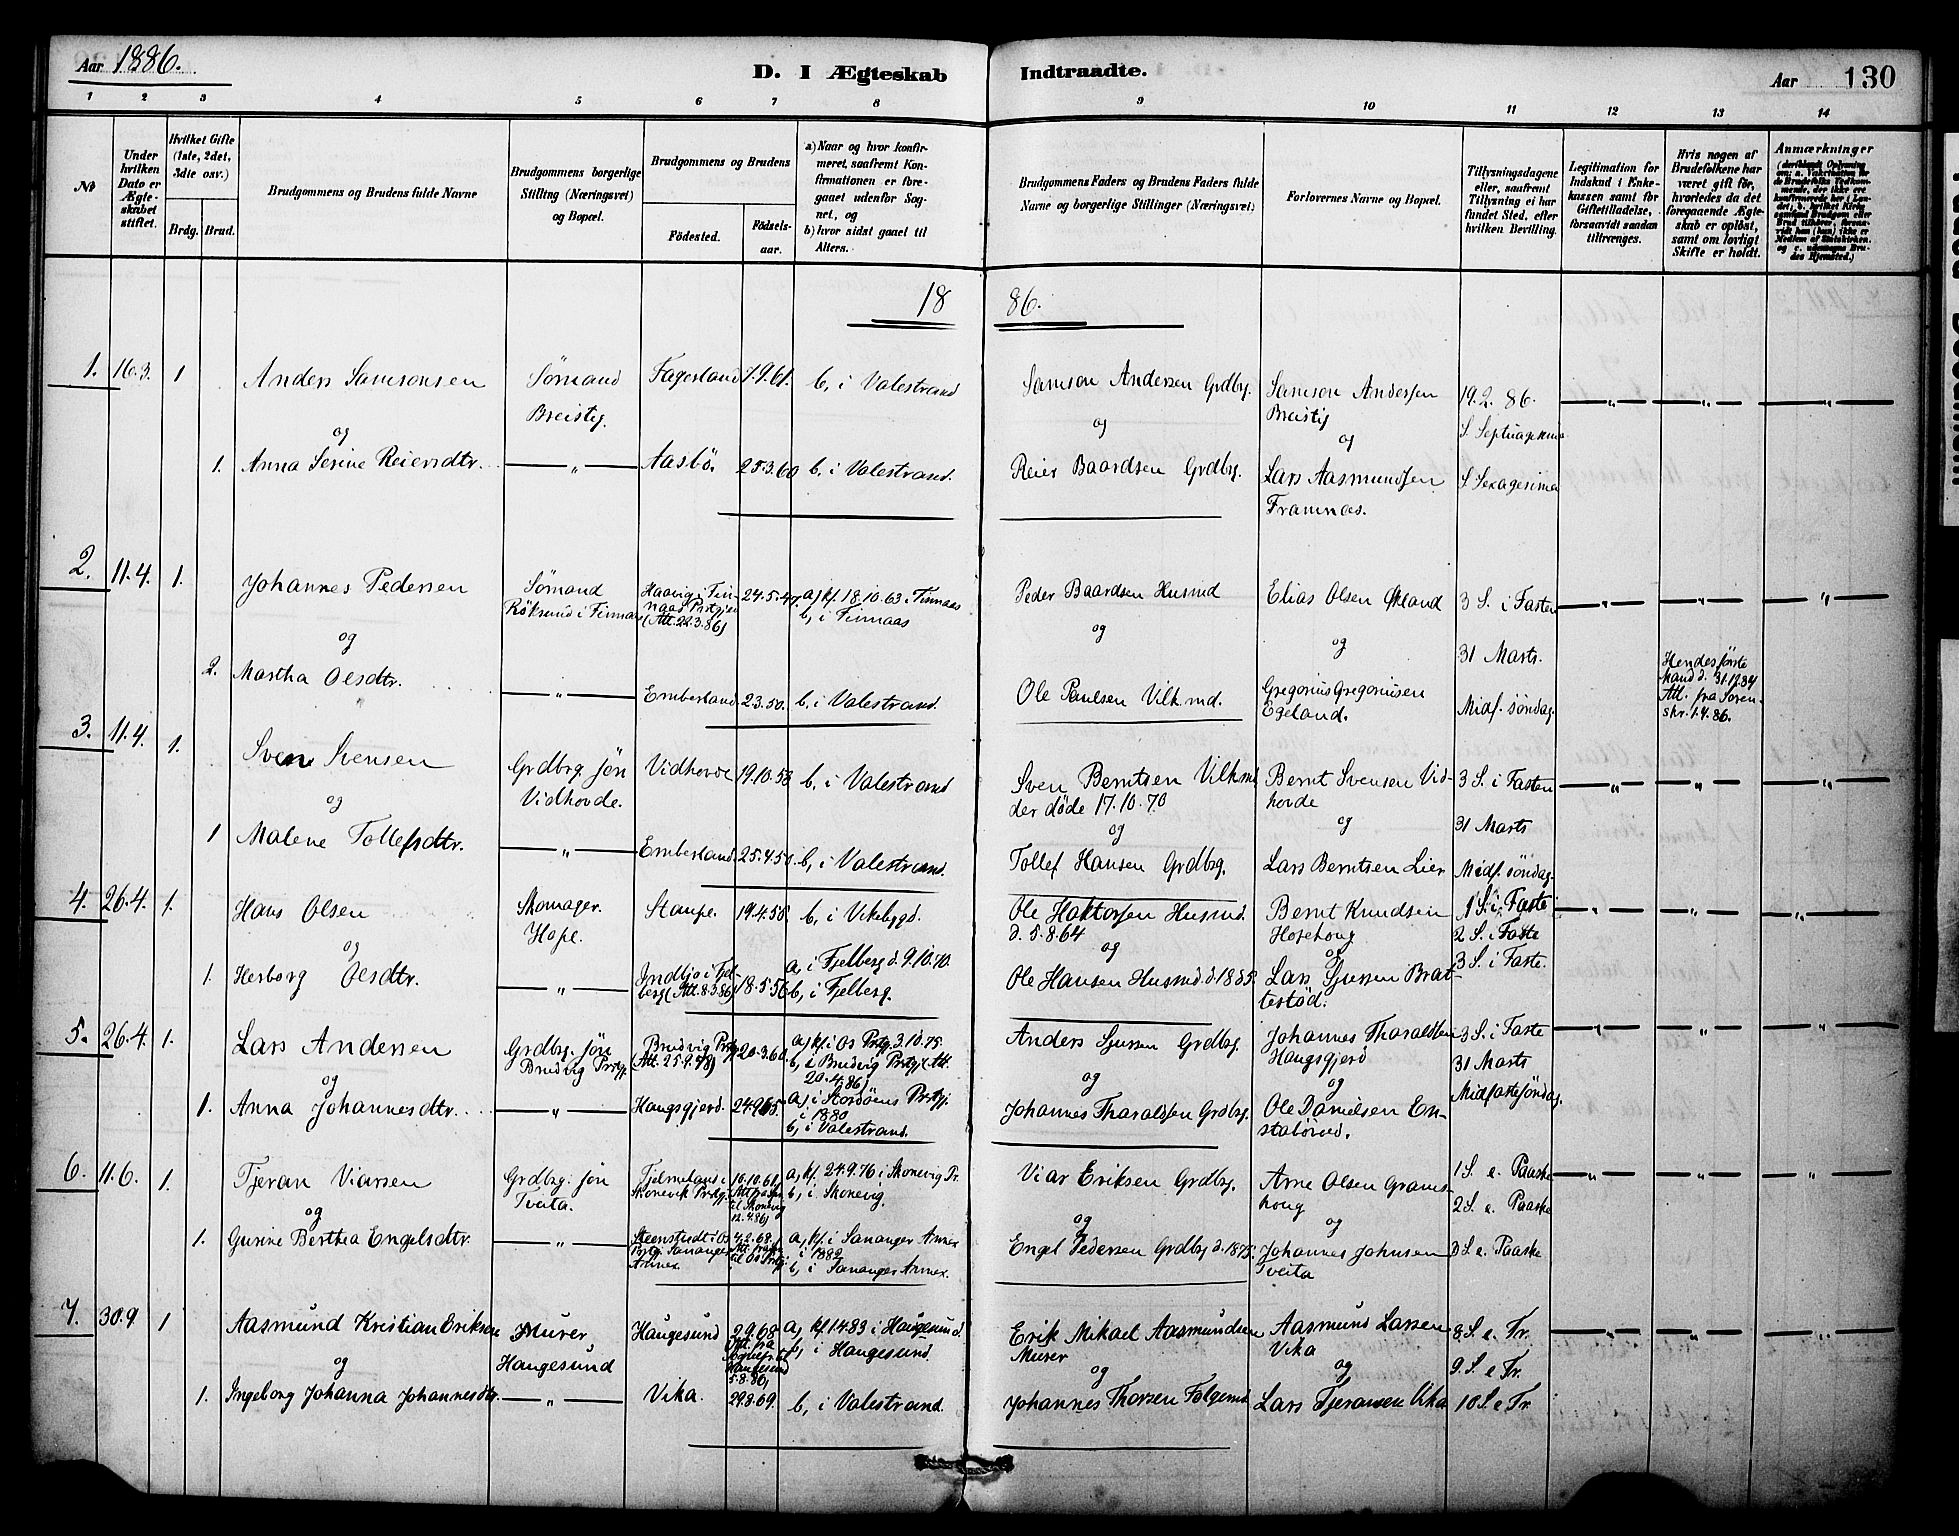 Aar 1886.
D. I Ægteskab Indtraadte.
Aar 130
1 2 3 4 5 6 7 8 9 10 11 12 13 14
№
Under hvilken Dato er Ægteskabet stiftet.
Hvilket Gifte (1ste, 2det, 3die osv.)
Brdg. Brud.
Brudgommens og Brudens fulde Navne
Brudgommens borgerlige Stilling (Næringsvei) og Bopæl.
Brudgommens og Brudens
Fødested. Fødselsaar.
a) Naar og hvor konfirmeret, saafremt Konfirmationen er foregaaet udenfor Sognet, og
b) hvor sidst gaaet til Alters.
Brudgommens Faders og Brudens Faders fulde Navne og borgerlige Stillinger (Næringsvei)
Forlovernes Navne og Bopæl.
Tillysningsdagene eller, saafremt Tillysning ei har fundet Sted, efter hvilken Bevilling.
Legitimation for Indskud i Enkekassen samt for Giftetilladelse, forsaavidt saadan tiltrænges.
Hvis nogen af Brudefolkene har været gift før, hvorledes da det foregaaende Ægteskab er opløst, samt om lovligt Skifte er holdt.
Anmærkninger
18 86.
1. 16.3. 1 Anders Samsonsen Sømand Breistig. Fagerland 7.9.61. b, i Valestrand Samson Andersen Grdbg. Samson Anderssen Breistig 19.2.86. S. Septuagesima
og og og
1. Anna Serine Reiersdtr. — „ — Aasbö. 25.3.60 b, i Valestrand. Reier Baardsen Grdbg. Lars Aasmundssen Framnæs. S. Sexagesima
2. 11.4. 1. Johannes Pedersen Sømand Röksund i Finnaas Haavig i Finnaas Prstgjeld (Att. 22.3.86) 24.5.47. a, kf. 18.10.63 i Finnaas b, i Finnaas Peder Baardsen Husmd Elias Olsen Økland 3 S. i Fasten
og og og 31 Marts.
2. Martha Olsdtr. — „ — Emberland. 2.3.50. b, i Valestrand. Ole Paulsen Vilk.md. Gregorius Gregoriusen Egeland. Midf. søndag. Hendes første Mand d. 31.12.84 Att. fra Sorenskr. 1.4.86.
3. 11.4. 1. Sven Svensen Grdbrg. søn Vidhovde. Vidhovde 19.10.53 b, i Valestrand Sven Berntsen Vilkmd der døde 17.10.70 Bernt Svensen Vidhovde 3 S. i Fasten
og og og 31 Marts
1 Malene Tollefsdtr. — „ — Emberland. 25.4.50. b, i Valestrand. Tollef Hansen Grdbg. Lars Berntsen Lier Midf. søndag.
4. 26.4. 1. Hans Olsen Skomager. Hope. Staupe. 19.4.58. b, i Vikebygd. Ole Haktorsen Husmd. d. 5.8.64 Bernt Knudsen Hosehoug 1 S. i Faste 2 S. i Faste
og og og
1. Herborg Olsdtr. — „ — Indbjo i Fjelberg (Att. 8.3.86) 18.5.56 a, i Fjelberg d. 9.10.70. b, i Fjelberg. Ole Hansen Husmd. d. 1855. Lars Sjursen Brattestöd. 3 S. i Faste.
5. 26.4. 1. Lars Andersen Grdbg. søn Brudvig Prstgj. Brudvig Prstgj (Att. 25.9.78) 20.3.60. a, kf. i Os Prstg. 3.10.75. b, i Brudvig Prstgj. (Att. 20.4.86) Anders Sjursen Grdbg. Johannes Tharaldsen Haugsgjerd 3 S. i Faste
og og og 31 Marts
1. Anna Johannesdtr. — „ — Haugsgjerd. 24.9.65. a, i Stordöens Prstgj. i 1880 b, i Valestrand. Johannes Tharaldsen Grdbg. Ole Danielsen Enstabövod. Midfastesöndag.
6. 11.6. 1. Tjeran Viarsen Grdbg. søn Tveita. Fjelmeland i Skonevik Prstgj. 10.10.61 12.4.86) a, kf. 24.9.76 i Skonevig Pr. b, i Skonevig. Viar Eriksen Grdbg. Arne Olsen Gramshoug 1 S. e. Paaske 2 S. e. Paaske
og og og
1. Gurine Berthea Engelsdtr. — „ — Steenstvedt i Os Prstgj. Sananger Annex. 4.2.68. a, kf. i Sananger Annex i 1882 b, i Sananger Annex. Engel Pedersen Grdbg d. 1875. Johannes Johnsen Tveita 3 S. e. Paaske
7. 30.9 1 Aasmund Kristian Eriksen Murer Haugesund Haugesund 2.9.68 Att. fra Haugesund 5.8.86) a, kf. 1.4.83 i Haugesund b, i Haugesund. Erik Mikael Aasmundsen Murer Aasmund Larsen Vika 8 S. e. Tr.
og og og 9 S. e Tr.
1. Ingeborg Johanna Johannesdtr. — „ — Vika. 29.8.69. b, i Valestrand. Johannes Thorsen Folgemd. Lars Tjeransen Vika 10 S. e Tr.